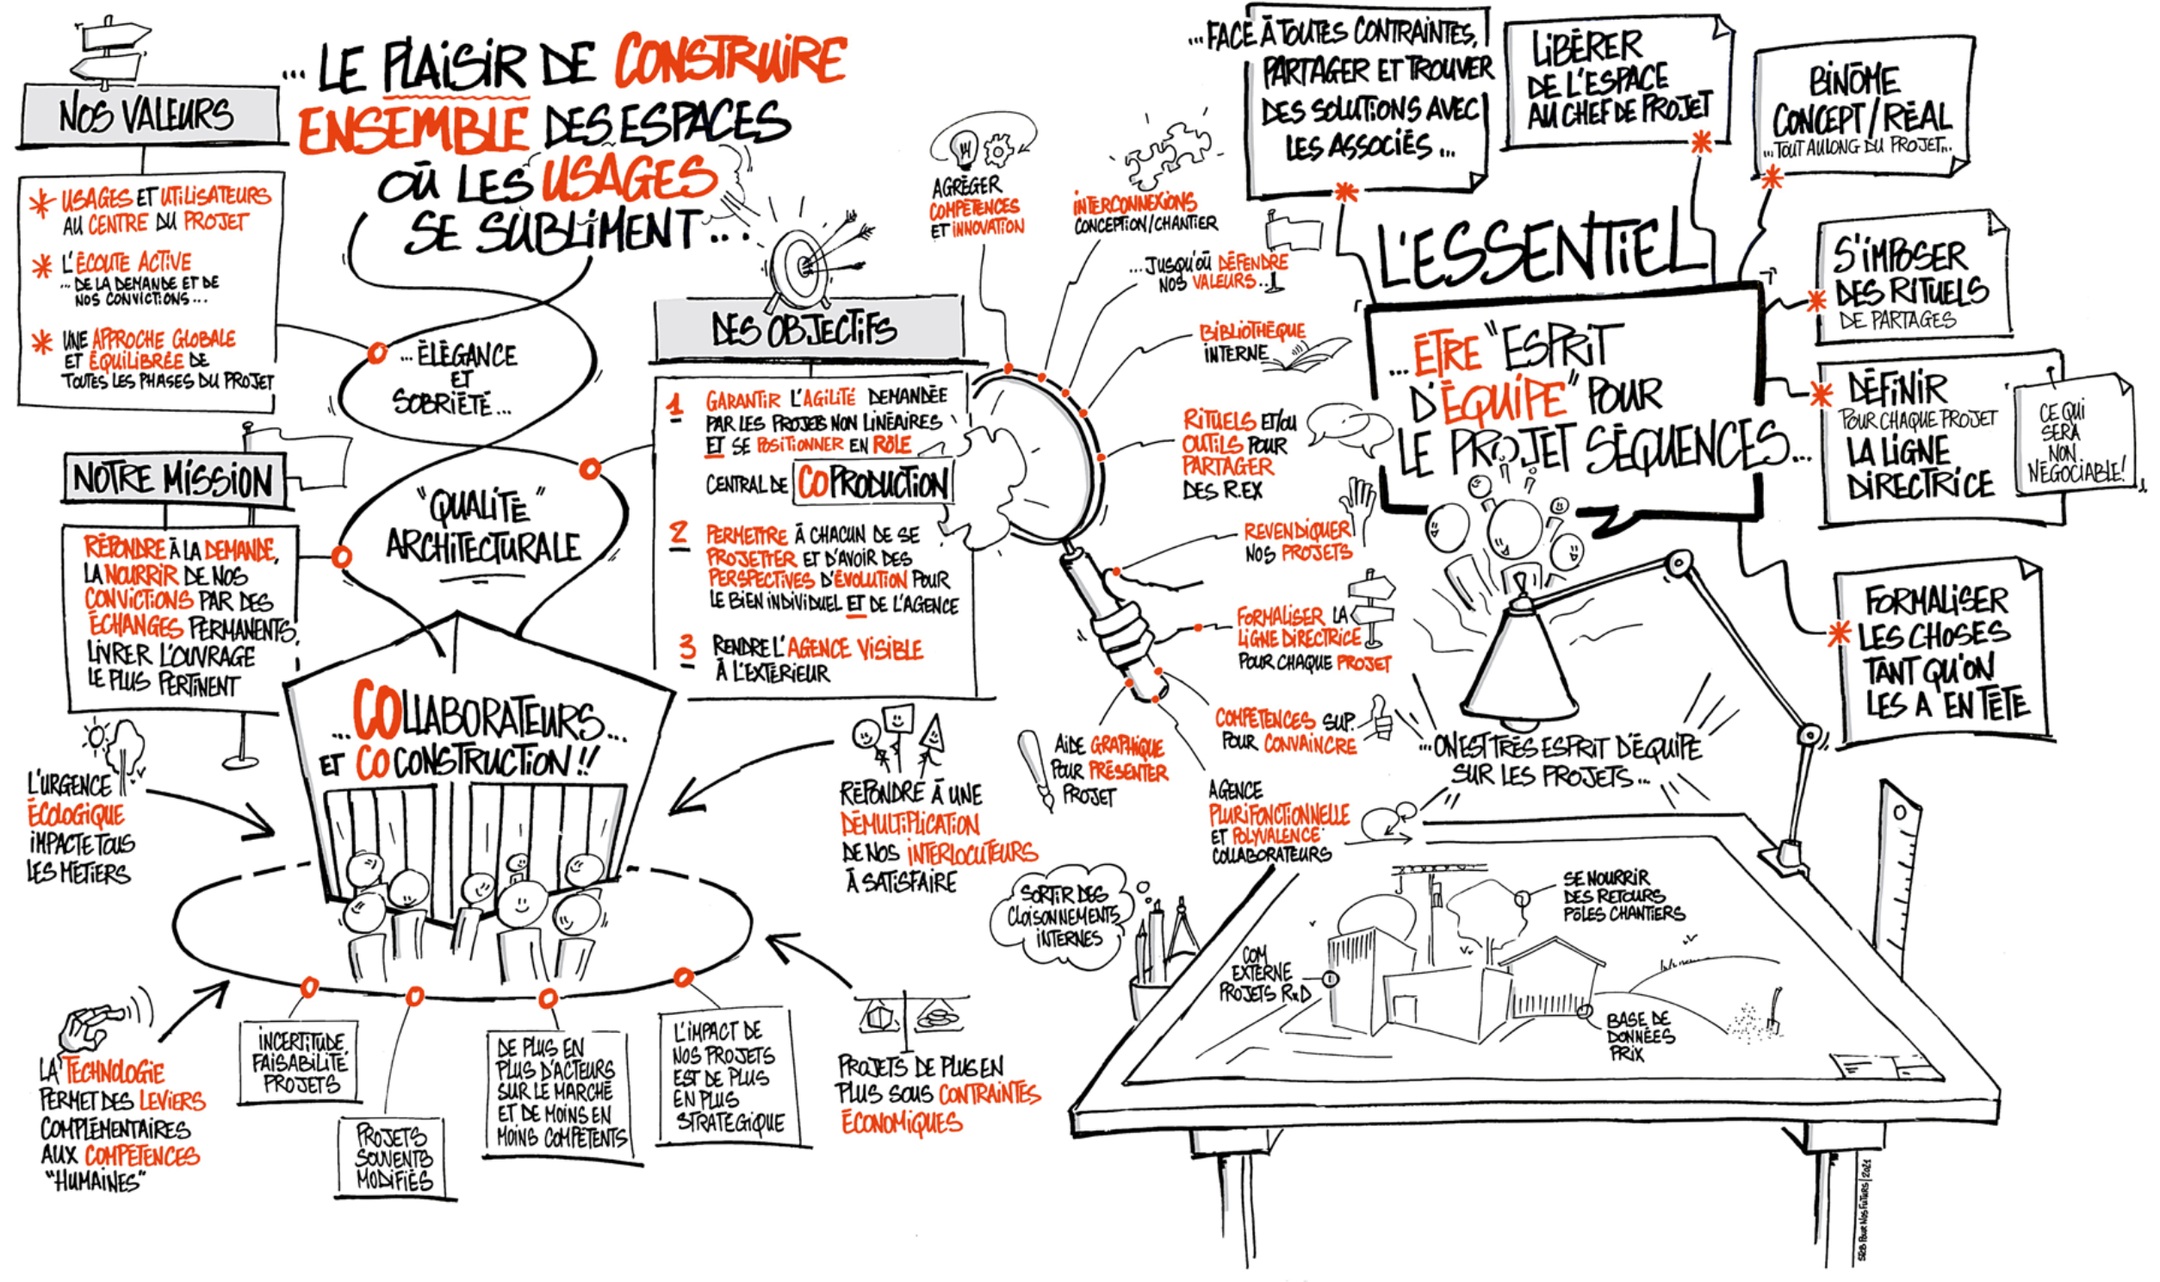 NOS VALEURS
* USAGES ET UTILISATEURS
AU CENTRE DU PROJET
* L'ÉCOUTE ACTIVE
... DE LA DEMANDE ET DE
NOS CONVICTIONS...
* UNE APPROCHE GLOBALE
ET ÉQUILIBRÉE DE
TOUTES LES PHASES DU PROJET
... LE PLAISIR DE CONSTRUIRE
ENSEMBLE DES ESPACES
OÙ LES USAGES
SE SUBLIMENT...
... ÉLÉGANCE
ET
SOBRIÉTÉ...
"QUALITÉ"
ARCHITECTURALE
NOTRE MISSION
RÉPONDRE À LA DEMANDE,
LA NOURRIR DE NOS
CONVICTIONS PAR DES
ÉCHANGES PERMANENTS,
LIVRER L'OUVRAGE
LE PLUS PERTINENT
...COLLABORATEURS...
ET CO CONSTRUCTION !!
L'URGENCE
ÉCOLOGIQUE
IMPACTE TOUS
LES MÉTIERS
LA TECHNOLOGIE
PERMET DES LEVIERS
COMPLÉMENTAIRES
AUX COMPÉTENCES
"HUMAINES"
INCERTITUDE,
FAISABILITÉ
PROJETS
PROJETS
SOUVENTS
MODIFIÉS
DE PLUS EN
PLUS D'ACTEURS
SUR LE MARCHÉ
ET DE MOINS EN
MOINS COMPÉTENTS
L'IMPACT DE
NOS PROJETS
EST DE PLUS
EN PLUS
STRATÉGIQUE
RÉPONDRE À UNE
DÉMULTIPLICATION
DE NOS INTERLOCUTEURS
À SATISFAIRE
PROJETS DE PLUS EN
PLUS SOUS CONTRAINTES
ÉCONOMIQUES
DES OBJECTIFS
1 GARANTIR L'AGILITÉ DEMANDÉE
PAR LES PROJETS NON LINÉAIRES
ET SE POSITIONNER EN RÔLE
CENTRAL DE COPRODUCTION
2 PERMETTRE À CHACUN DE SE
PROJETTER ET D'AVOIR DES
PERSPECTIVES D'ÉVOLUTION POUR
LE BIEN INDIVIDUEL ET DE L'AGENCE
3 RENDRE L'AGENCE VISIBLE
À L'EXTÉRIEUR
AGRÉGER
COMPÉTENCES
ET INNOVATION
INTERCONNEXIONS
CONCEPTION/CHANTIER
...JUSQU'OÙ DÉFENDRE
NOS VALEURS...
BIBLIOTHÈQUE
INTERNE
RITUELS ET/OU
OUTILS POUR
PARTAGER
DES R.EX
REVENDIQUER
NOS PROJETS
FORMALISER LA
LIGNE DIRECTRICE
POUR CHAQUE PROJET
COMPÉTENCES SUP.
POUR CONVAINCRE
AGENCE
PLURIFONCTIONNELLE
ET POLYVALENCE
COLLABORATEURS
AIDE GRAPHIQUE
POUR PRÉSENTER
PROJET
SORTIR DES
CLOISONNEMENTS
INTERNES
...FACE À TOUTES CONTRAINTES,
PARTAGER ET TROUVER
DES SOLUTIONS AVEC
LES ASSOCIÉS...
LIBÉRER
DE L'ESPACE
AU CHEF DE PROJET
BINÔME
CONCEPT/RÉAL
...TOUT AU LONG DU PROJET...
L'ESSENTIEL
...ÊTRE "ESPRIT
D'ÉQUIPE" POUR
LE PROJET SÉQUENCES...
S'IMPOSER
DES RITUELS
DE PARTAGES
DÉFINIR
POUR CHAQUE PROJET
LA LIGNE
DIRECTRICE
CE QUI
SERA
NON
NÉGOCIABLE!
FORMALISER
LES CHOSES
TANT QU'ON
LES A EN TÊTE
...ON EST TRÈS ESPRIT D'ÉQUIPE
SUR LES PROJETS...
SE NOURRIR
DES RETOURS
PÔLES CHANTIERS
COM
EXTERNE
PROJETS R&D
BASE DE
DONNÉES
PRIX
SR28 POUR NOS FUTURS | 2021